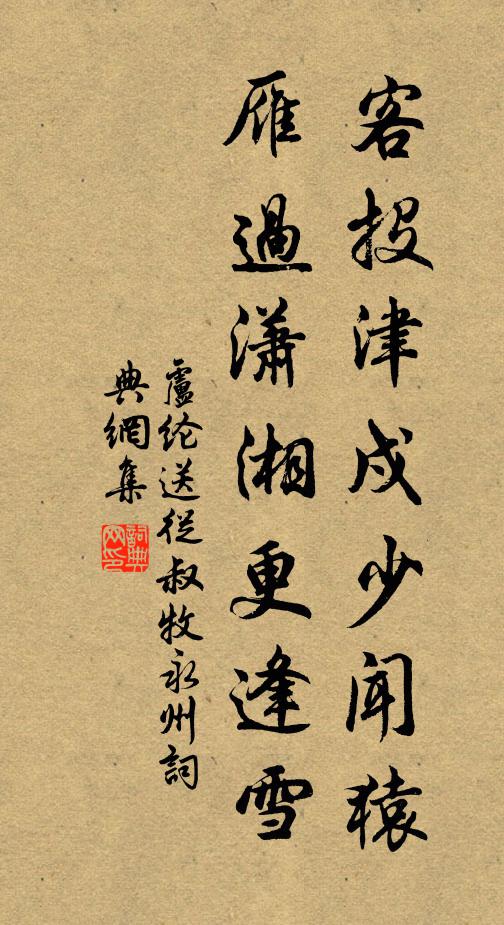 客投津戍少聞猿
雁過瀟湘更逢雪
盧纶送從叔牧永州詞
典網集
詞典
网印